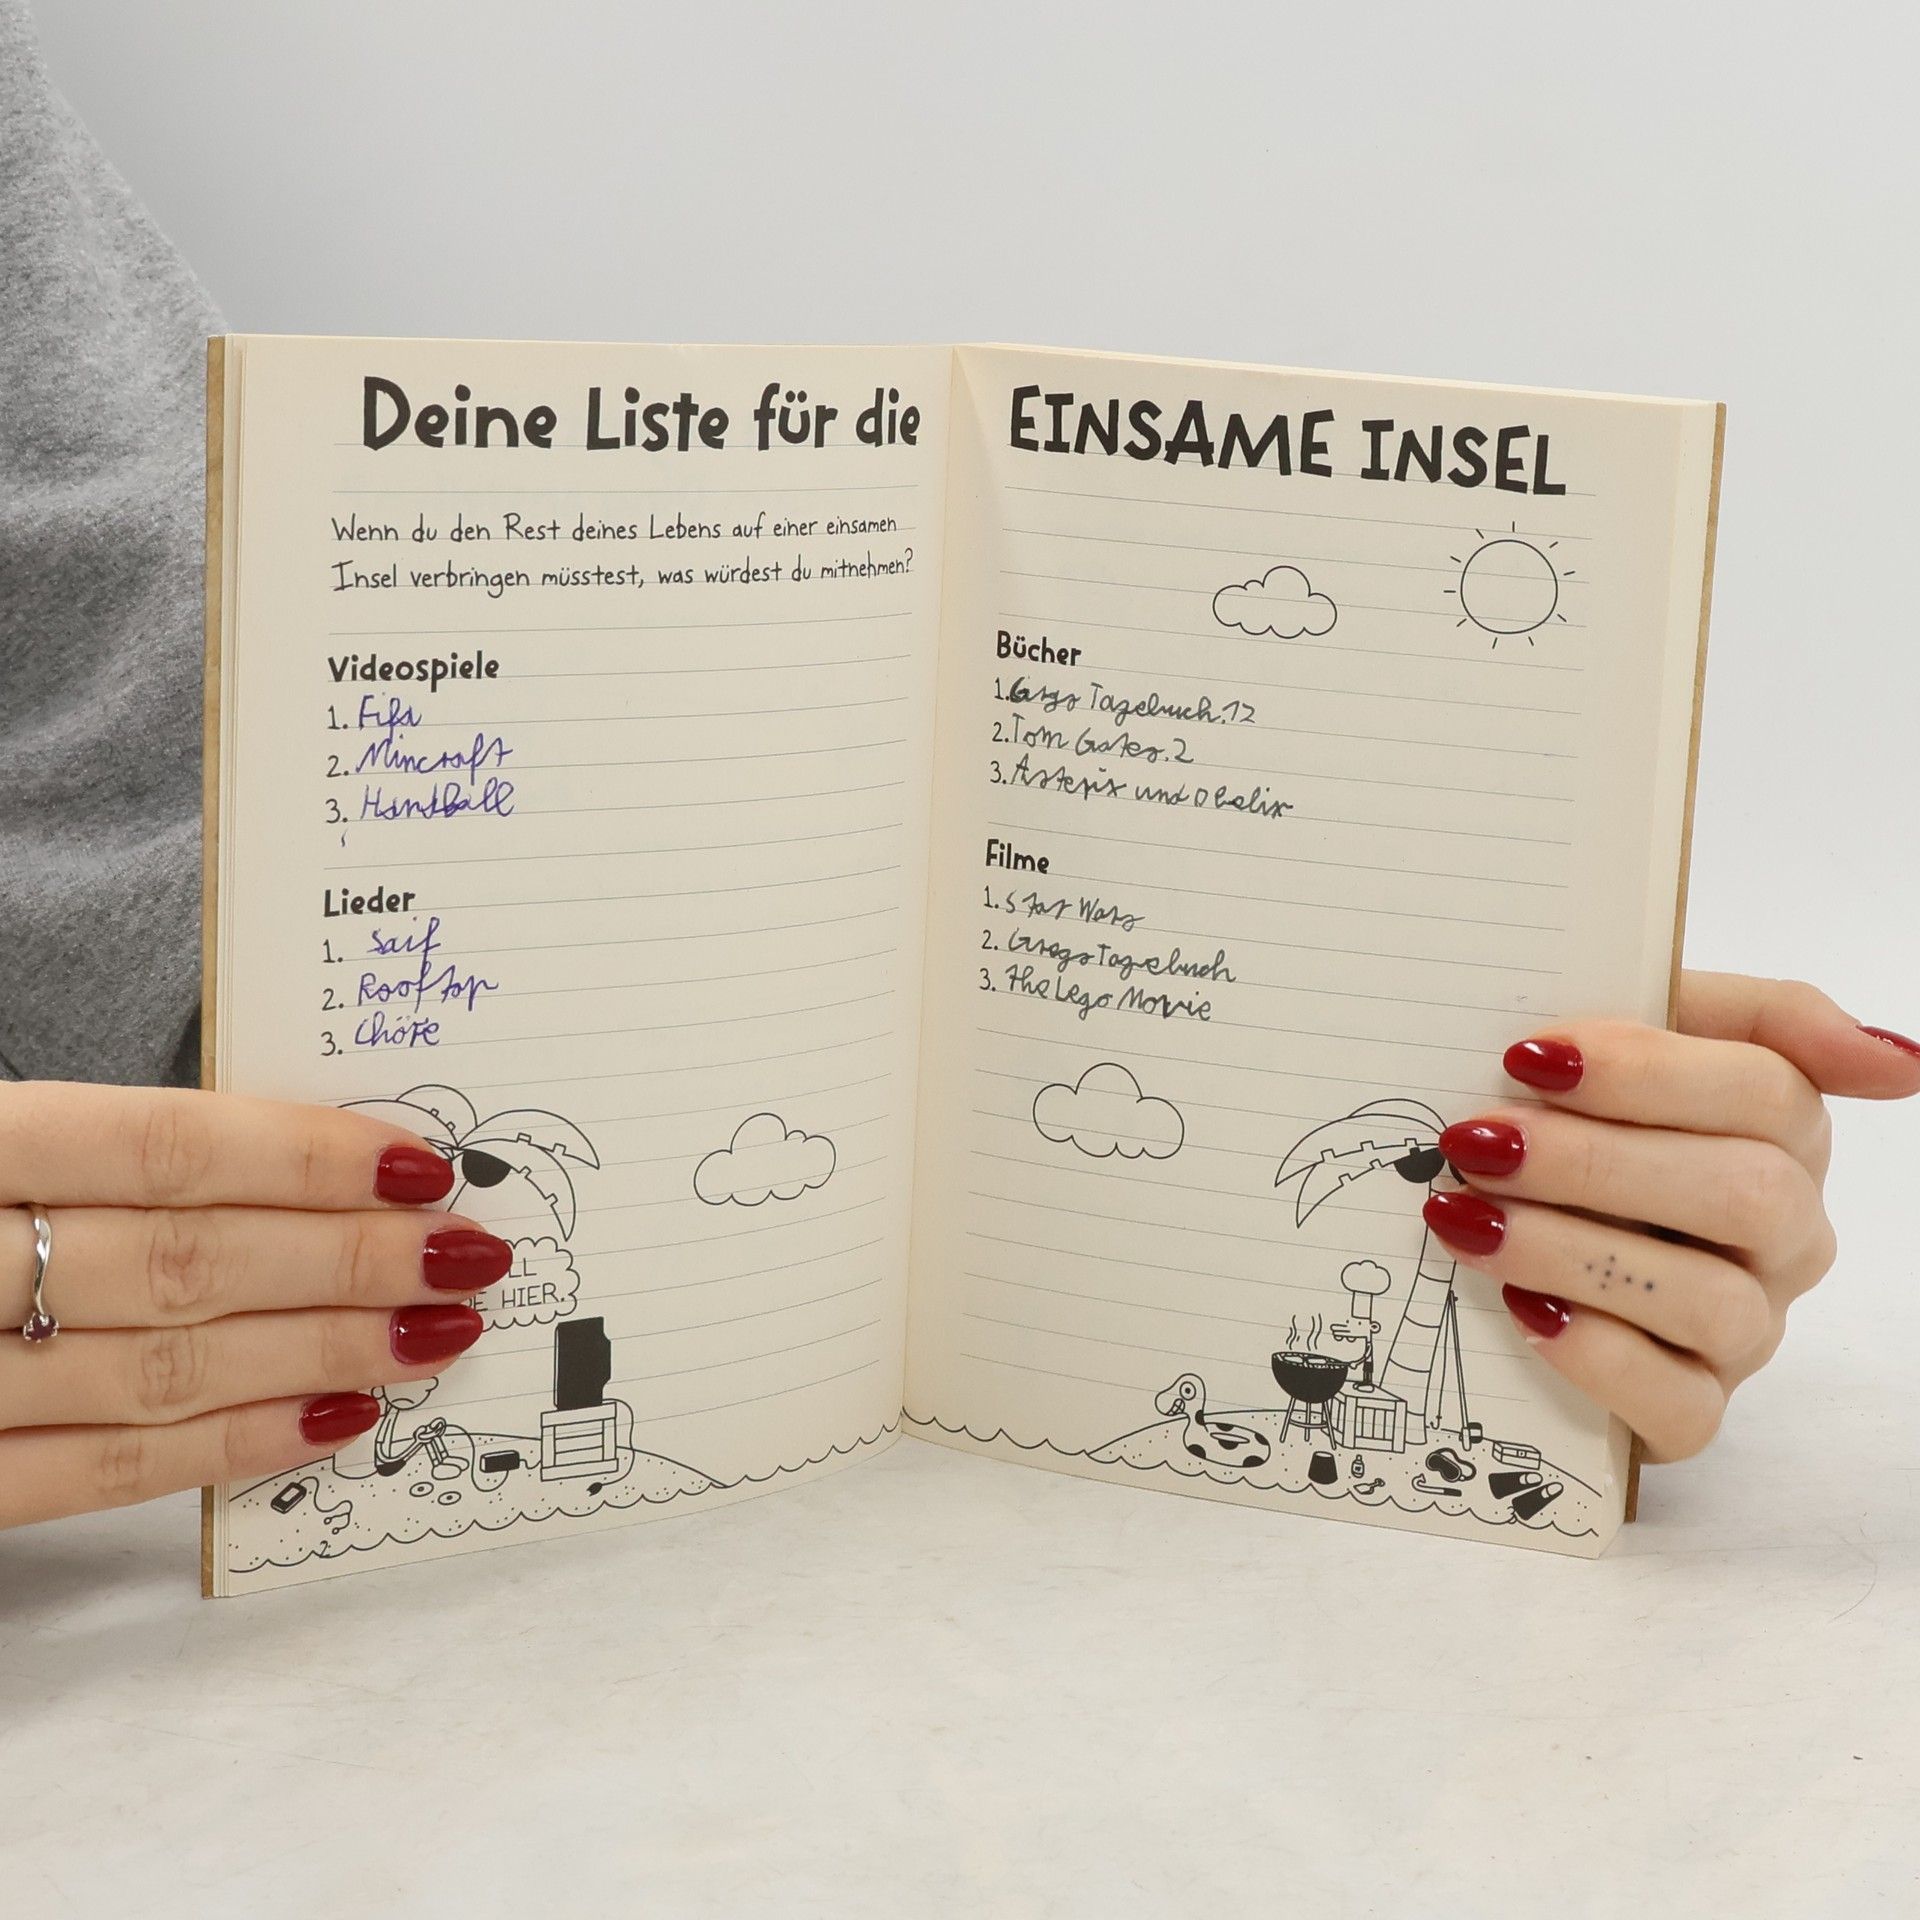 Deine Liste für die
Wenn du den Rest deines Lebens auf einer einsamen
Insel verbringen müsstest, was würdest du mitnehmen?
Videospiele
1. Fifa
2. Mincraft
3. Handball
Lieder
1. Saif
2. Rooftop
3. Chöre
HIER.
2
EINSAME INSEL
Bücher
1. Gregs Tagebuch.12
2. Tom Gates.2
3. Asterix und Obelix
Filme
1. Star Wars
2. Gregs Tagebuch
3. The Lego Movie
3